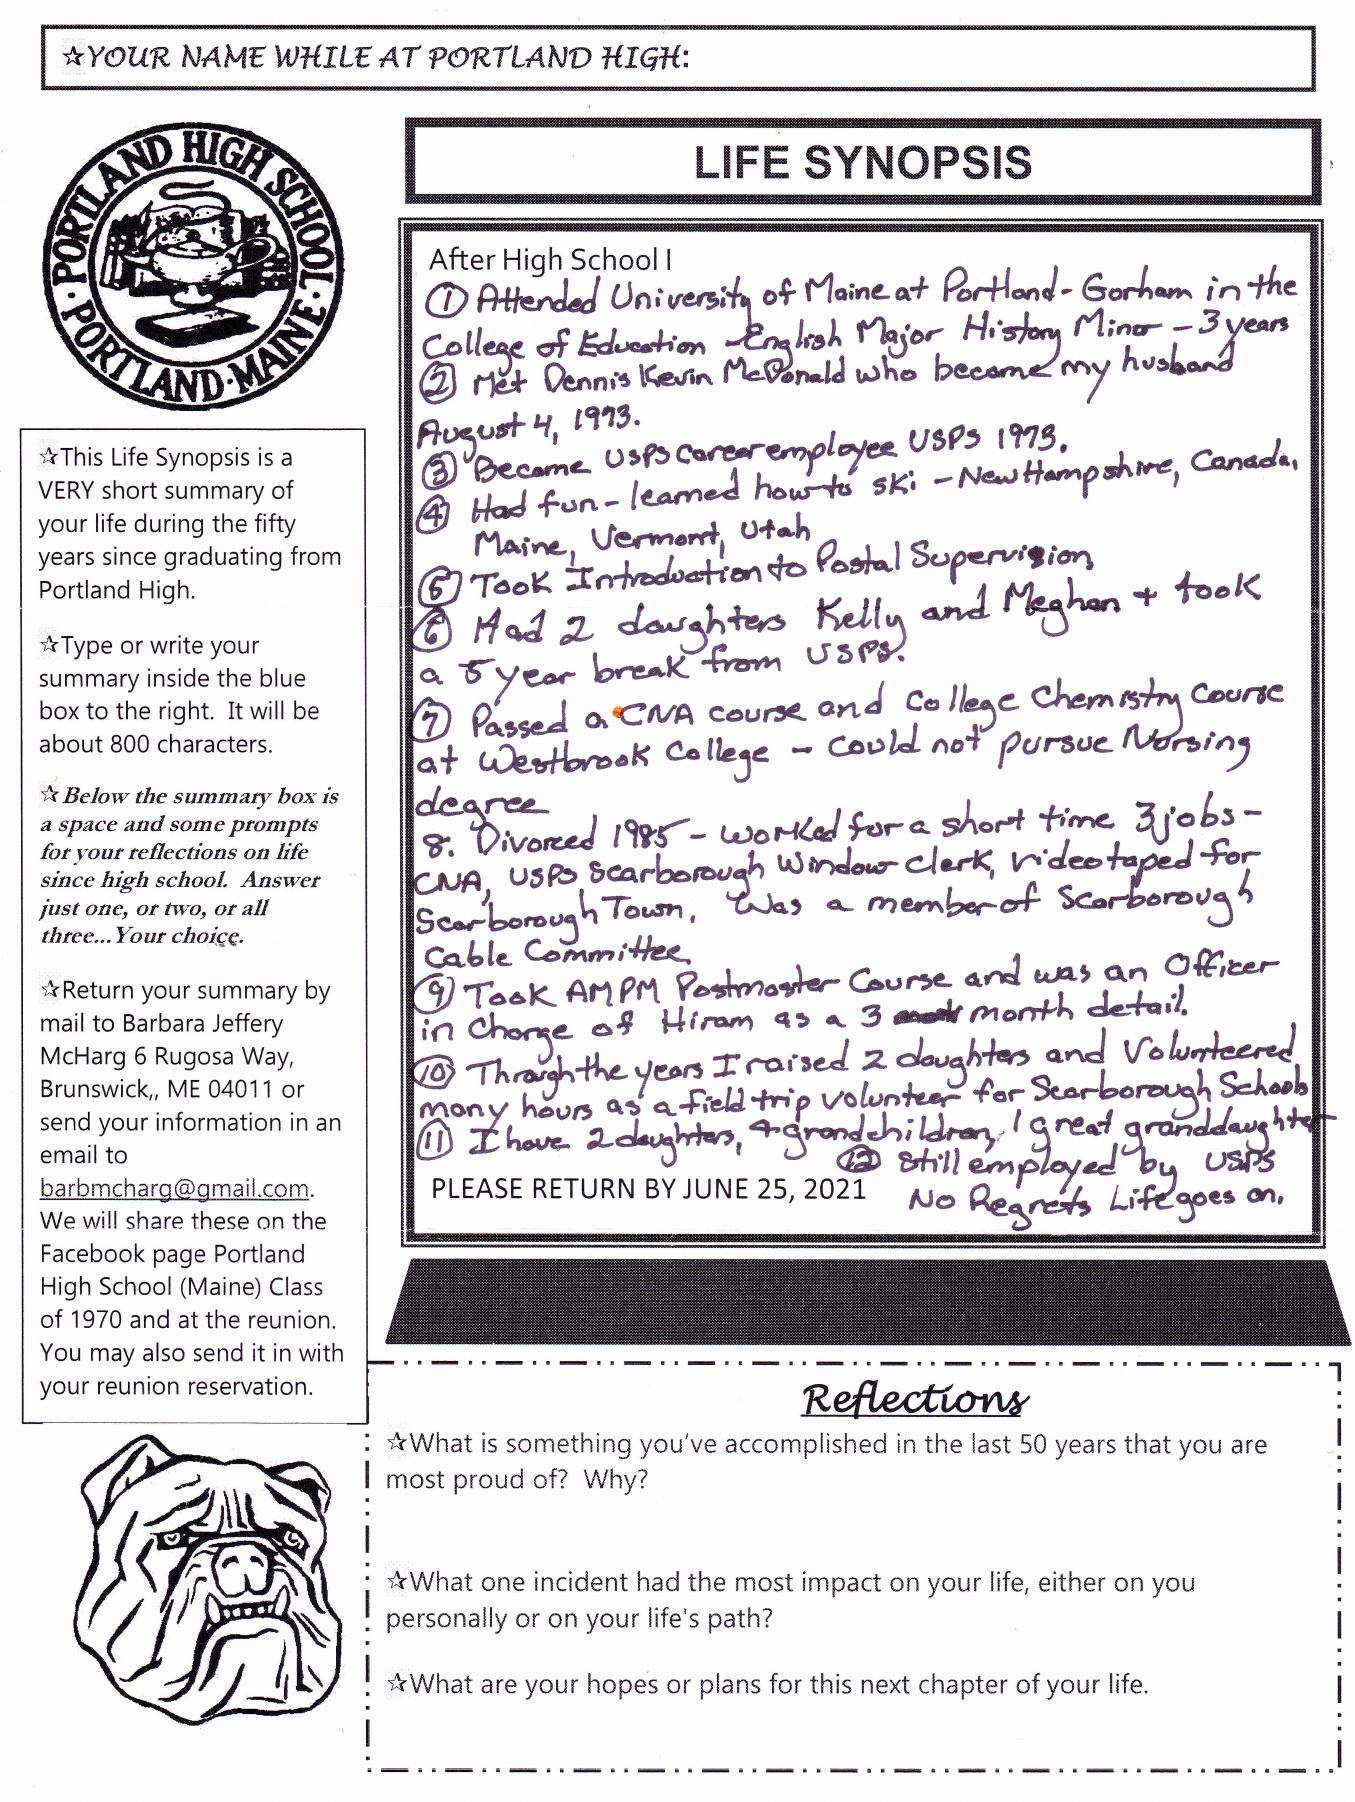 ☆YOUR NAME WHILE AT PORTLAND HIGH:
PORTLAND HIGH SCHOOL · PORTLAND · MAINE ·
LIFE SYNOPSIS
After High School I
① Attended University of Maine at Portland-Gorham in the
College of Education - English Major History Minor - 3 years
② Met Dennis Kevin McDonald who became my husband
August 4, 1973.
③ Became USPS career employee USPS 1973.
④ Had fun - learned how to ski - New Hampshire, Canada,
Maine, Vermont, Utah
⑤ Took Introduction to Postal Supervision
⑥ Had 2 daughters Kelly and Meghan + took
a 5 year break from USPS.
⑦ Passed a CNA course and College Chemistry Course
at Westbrook College - could not pursue Nursing
degree
8. Divorced 1985 - worked for a short time 3 jobs -
CNA, USPS Scarborough Window clerk, videotaped for
Scarborough Town. Was a member of Scarborough
Cable Committee.
⑨ Took AMPM Postmaster Course and was an Officer
in Charge of Hiram as a 3 month detail.
⑩ Through the years I raised 2 daughters and Volunteered
many hours as a field trip volunteer for Scarborough Schools
⑪ I have 2 daughters, 4 grandchildren, 1 great granddaughter
⑫ Still employed by USPS
No Regrets Life goes on.
PLEASE RETURN BY JUNE 25, 2021
☆This Life Synopsis is a
VERY short summary of
your life during the fifty
years since graduating from
Portland High.
☆Type or write your
summary inside the blue
box to the right. It will be
about 800 characters.
☆Below the summary box is
a space and some prompts
for your reflections on life
since high school. Answer
just one, or two, or all
three...Your choice.
☆Return your summary by
mail to Barbara Jeffery
McHarg 6 Rugosa Way,
Brunswick,, ME 04011 or
send your information in an
email to
barbmcharg@gmail.com.
We will share these on the
Facebook page Portland
High School (Maine) Class
of 1970 and at the reunion.
You may also send it in with
your reunion reservation.
Reflections
☆What is something you've accomplished in the last 50 years that you are
most proud of? Why?
☆What one incident had the most impact on your life, either on you
personally or on your life's path?
☆What are your hopes or plans for this next chapter of your life.